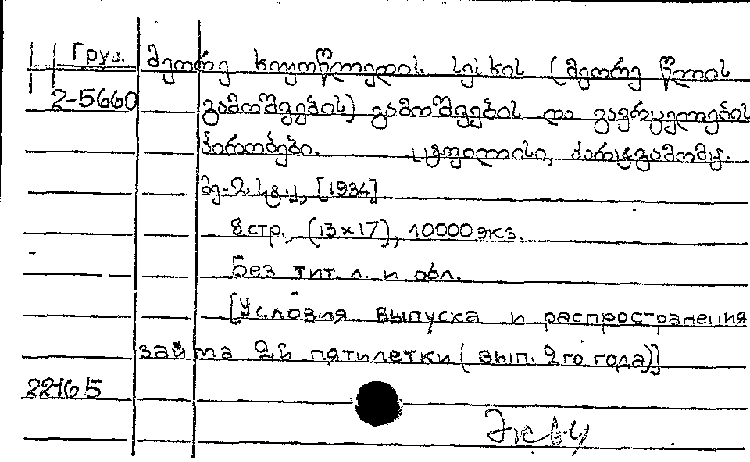 Груз. მეორე ხუთწლედის სესხის (მეორე წლის
2-5660 გამოშვების) გამოშვების და გავრცელების
პირობები. ტფილისი, ქარტგამომც.
მე-2 სტ., [1934]
8 стр., (13х17), 10000 экз.
Без тит. л. и обл.
[Условия выпуска и распространения
займа 2й пятилетки (вып. 2го года)]
22165